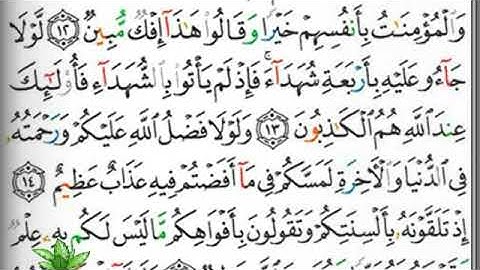 وَالْمُؤْمِنَٰتُ بِأَنفُسِهِمْ خَيْرًا وَقَالُوا۟ هَٰذَآ إِفْكٌ مُّبِينٌ ﴿١٢﴾ لَّوْلَا
جَآءُو عَلَيْهِ بِأَرْبَعَةِ شُهَدَآءَ ۚ فَإِذْ لَمْ يَأْتُوا۟ بِالشُّهَدَآءِ فَأُو۟لَٰٓئِكَ
عِندَ اللَّهِ هُمُ الْكَٰذِبُونَ ﴿١٣﴾ وَلَوْلَا فَضْلُ اللَّهِ عَلَيْكُمْ وَرَحْمَتُهُۥ
فِى الدُّنْيَا وَالْءَاخِرَةِ لَمَسَّكُمْ فِى مَآ أَفَضْتُمْ فِيهِ عَذَابٌ عَظِيمٌ ﴿١٤﴾
إِذْ تَلَقَّوْنَهُۥ بِأَلْسِنَتِكُمْ وَتَقُولُونَ بِأَفْوَاهِكُم مَّا لَيْسَ لَكُم بِهِۦ عِلْمٌ